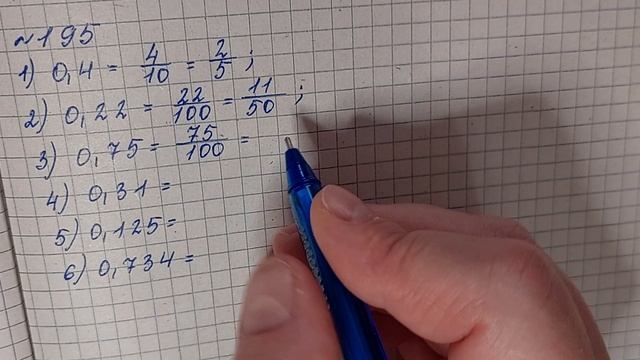 №195
1) 0,4 = 4/10 = 2/5 ;
2) 0,22 = 22/100 = 11/50 ;
3) 0,75 = 75/100 =
4) 0,31 =
5) 0,125 =
6) 0,734 =